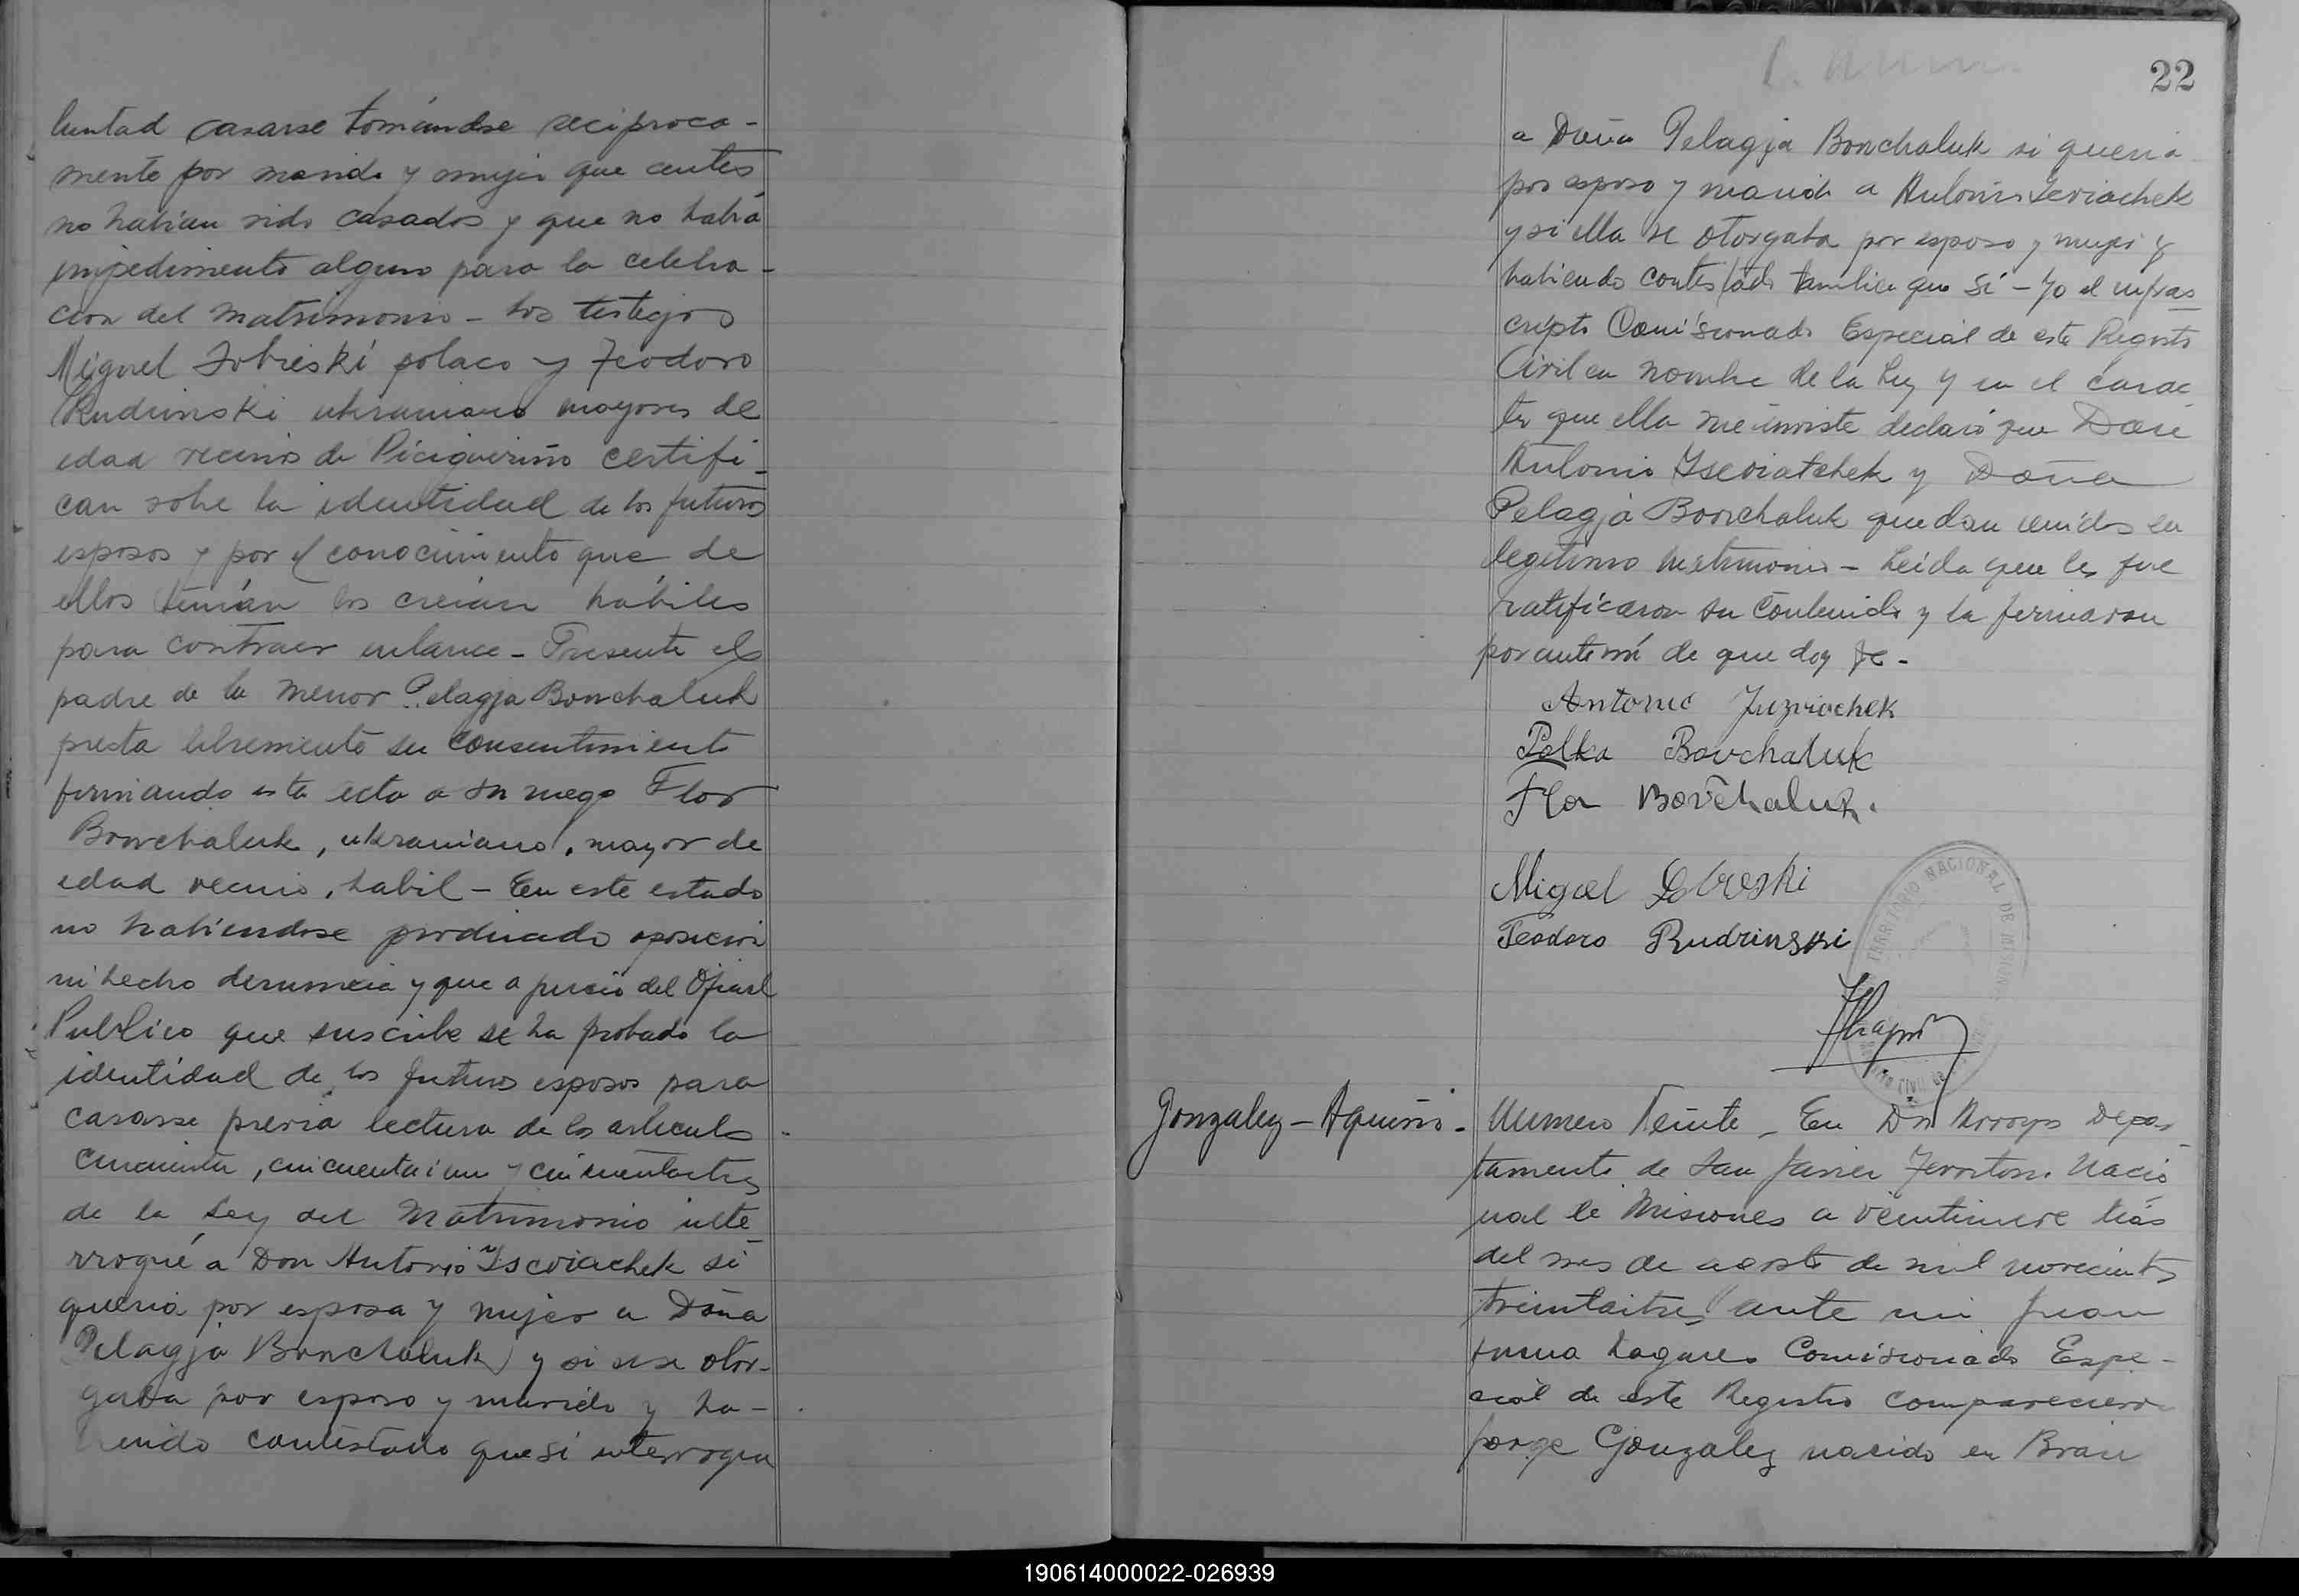 luntad casarse tomándose recíproca-
mente por marido y mujer que antes
no habían sido casados y que no había
impedimento alguno para la celebra-
cion del matrimonio - Los testigos
Miguel Sobieski polaco y Teodoro
Rudzinski ukraniano mayores de
edad vecinos de Picaguerino certifi-
can sobre la identidad de los futuros
esposos y por el conocimiento que de
ellos tenían los creían hábiles
para contraer enlace - Presente el
padre de la menor Pelagja Bowchaluk
presta libremente su consentimiento
firmando esta acta a su ruego Flor
Bowchaluk, ukraniano, mayor de
edad vecino, habil - En este estado
no habiendose producido oposicion
ni hecho denuncia y que a juicio del Oficial
Publico que suscribe se ha probado la
identidad de los futuros esposos para
casarse previa lectura de los articulos
cincuenta, cincuentaiun y cincuentaitres
de la Ley del Matrimonio inte-
rrogué a Don Antonio Iseviachek si
queria por esposa y mujer a Doña
Pelagja Bowchaluk y si se otor-
gaba por esposo y marido y ha-
biendo contestado que si interrogue
22
a Doña Pelagja Bowchaluk si queria
por esposo y marido a Antonio Iseviachek
y si ella se otorgaba por esposo y mujer y
habiendo contestado tambien que Si - Yo el infras-
cripto Comisionado Especial de este Registro
Civil en nombre de la Ley y en el carac-
ter que ella me inviste declaro que Don
Antonio Iseviatchek y Doña
Pelagja Bowchaluk quedan unidos en
legitimo matrimonio - Leida que les fue
ratificaron su contenido y la firmaron
por ante mi de que doy fe -
Antonio Juzviachek
Polka Bovchaluk
Flor Bovchaluk.
Migael Sobreski
Teodoro Rudzinski
TERRITORIO NACIONAL DE MISIONES
Gonzalez - Aquino -
Numero Veinte - En Dos Arroyos Depar-
tamento de San Javier Territorio Nacio
nal de Misiones a veintinueve dias
del mes de agosto de mil novecientos
treintaitres ante mi Juan
Lagunes Comisionado Espe-
cial de este Registro comparecieron
Jorge Gonzalez nacido en Brasil
190614000022-026939